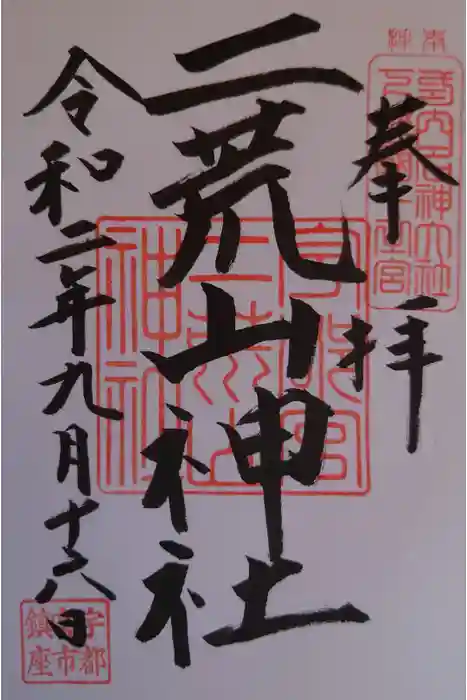 奉拝
式内名神大社
下野國一之宮
二荒山神社
宇都宮
二荒山
神社
令和二年九月十八日
宇都
宮市
鎮座